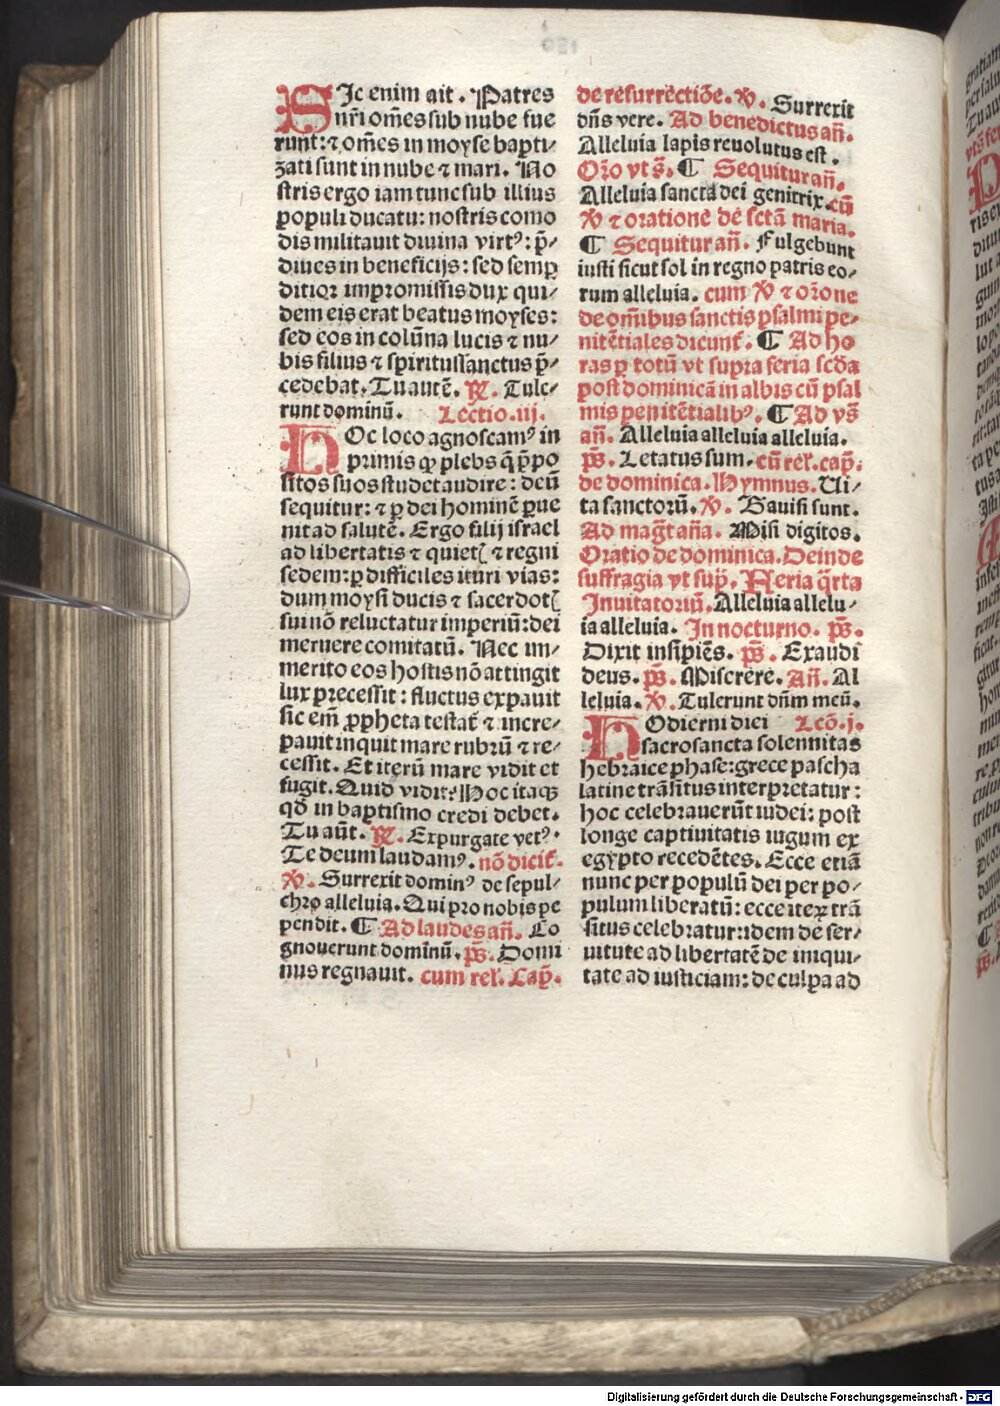 SIc enim ait. Patres
nr̄i om̄es sub nube fue
runt: ⁊ om̄es in moyse bapti⸗
zati sunt in nube ⁊ mari. No
stris ergo iam tunc sub illius
ꝑopuli ducatu: nostris como
dis militauit diuina virtꝰ: p̄⸗
diues in beneficijs: sed semꝑ
ditior impromissis dux qui⸗
dem eis erat beatus moyses:
sed eos in colūna lucis ⁊ nu⸗
bis filius ⁊ spiritussanctus p̄⸗
cedebat. Tu autē. ℟. Tule⸗
runt dominū. Lectio .iij.
HOc loco agnoscamꝰ in
primis ꝙ plebs q̄ p̄po
sitos suos studet audire: deū
sequitur: ⁊ ꝑ dei hominē ꝑue
nit ad salutē. Ergo filij israel
ad libertatis ⁊ quietꝭ ⁊ regni
sedem: ꝑ difficiles ituri vias:
dum moysi ducis ⁊ sacerdotꝭ
sui nō reluctatur imperiū: dei
meruere comitatū. Nec im⸗
merito eos hostis nō attingit
lux p̄cessit: fluctus expauit
sic em̄ ꝓpheta testat̄ ⁊ incre⸗
pauit inquit mare rubrū ⁊ re⸗
cessit. Et iterū mare vidit et
fugit. Quid vidit? Hoc itaqꝫ
qd̄ in baptismo credi debet.
Tu aūt. ℟. Expurgate vetꝰ.
Te deum laudamꝰ. nō dicit̄.
℣. Surrexit dominꝰ de sepul⸗
chro alleluia. Qui pro nobis pe
pendit. ¶ Ad laudes an̄. Co
gnouerunt dominū. ps̄. Domi
nus regnauit. cum rel̄. Cap̄.
de resurrectiōe. ℣. Surrexit
dn̄s vere. Ad benedictus an̄.
Alleluia lapis reuolutus est.
Or̄o vt s̄. ¶ Sequitur an̄.
Alleluia sancta dei genitrix. cū
℣ ⁊ oratione de sctā maria.
¶ Sequitur an̄. Fulgebunt
iusti sicut sol in regno patris eo⸗
rum alleluia. cum ℣ ⁊ or̄one
de om̄ibus sanctis psalmi pe⸗
nitētiales dicunt̄. ¶ Ad ho
ras ꝑ totū vt supra feria scd̄a
post dominicā in albis cū psal
mis penitētialibꝰ. ¶ Ad vs̄
an̄. Alleluia alleluia alleluia.
ps̄. Letatus sum. cū rel̄. cap̄.
de dominica. Hymnus. Ui⸗
ta sanctorū. ℣. Gauisi sunt.
Ad maḡt an̄a. Misi digitos.
Oratio de dominica. Deinde
suffragia vt sup̄. Feria q̄rta
Inuitatoriū. Alleluia allelu⸗
ia alleluia. In nocturno. ps̄.
Dixit insipiēs. ps̄. Exaudi
deus. ps̄. Miserere. An̄. Al
leluia. ℣. Tulerunt dn̄m meū.
HOdierni diei Lcō. j.
sacrosancta solennitas
hebraice phase: grece pascha
latine trāsitus interpretatur:
hoc celebrauerūt iudei: post
longe captiuitatis iugum ex
egypto recedētes. Ecce etiā
nunc per populū dei per po⸗
pulum liberatū: ecce iteꝝ trā
situs celebratur: idem de ser⸗
uitute ad libertatē de iniqui⸗
tate ad iusticiam: de culpa ad
Digitalisierung gefördert durch die Deutsche Forschungsgemeinschaft - DFG